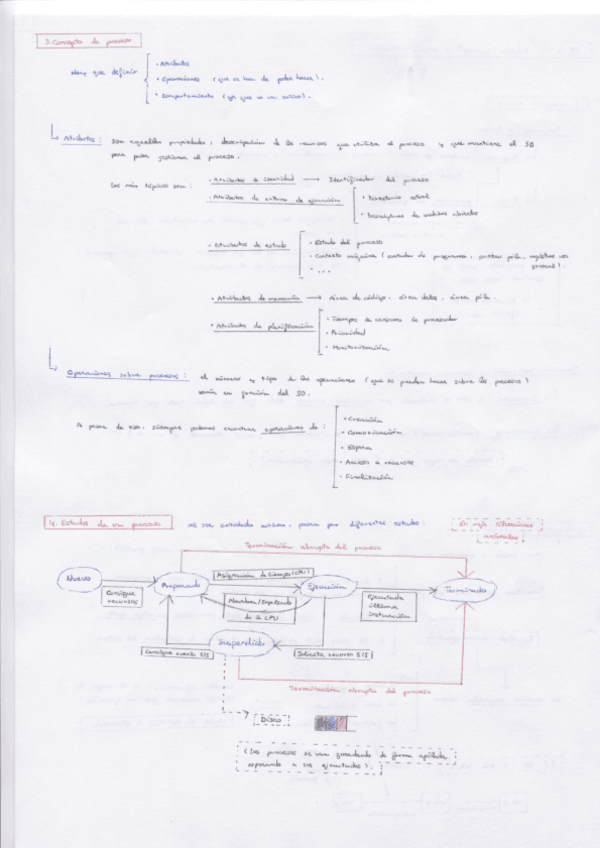 3. Concepto de proceso
Hay que definir
• Atributos
• Operaciones (que se han de poder hacer).
• Comportamiento (ya que es un activo).
Atributos: Son aquellas propiedades, descripción de los recursos que utiliza el proceso y que mantiene el SO
para poder gestionar el proceso.
Los más típicos son:
• Atributos de identidad → Identificador del proceso
• Atributos de entorno de ejecución
• Directorio actual
• Descriptores de archivos abiertos
• Atributos de estado
• Estado del proceso
• Contexto máquina (contador de programa, puntero pila, registros uso
general).
• ...
• Atributos de memoria → Área de código, área datos, área pila.
• Atributos de planificación
• Tiempos de consumo de procesador
• Prioridad
• Monitorización
Operaciones sobre procesos: el número y tipo de las operaciones (que se pueden hacer sobre los procesos)
varía en función del SO.
A pesar de eso, siempre podemos encontrar operaciones de:
• Creación
• Comunicación
• Espera
• Acceso a recursos
• Finalización
4. Estados de un proceso
Al ser entidades activas, pasan por diferentes estados:
En rojo situaciones
anómalas
Terminación abrupta del proceso
Nuevo
Consigue
recursos
Preparado
Asignación de tiempo (CPU)
Abandona/Expulsado
de la CPU
Ejecución
Ejecutada
última
instrucción
Terminado
Suspendido
Consigue evento E/S
Solicita recurso E/S
Terminación abrupta del proceso
Disco
(Los procesos se van guardando de forma apilada
esperando a ser ejecutados).